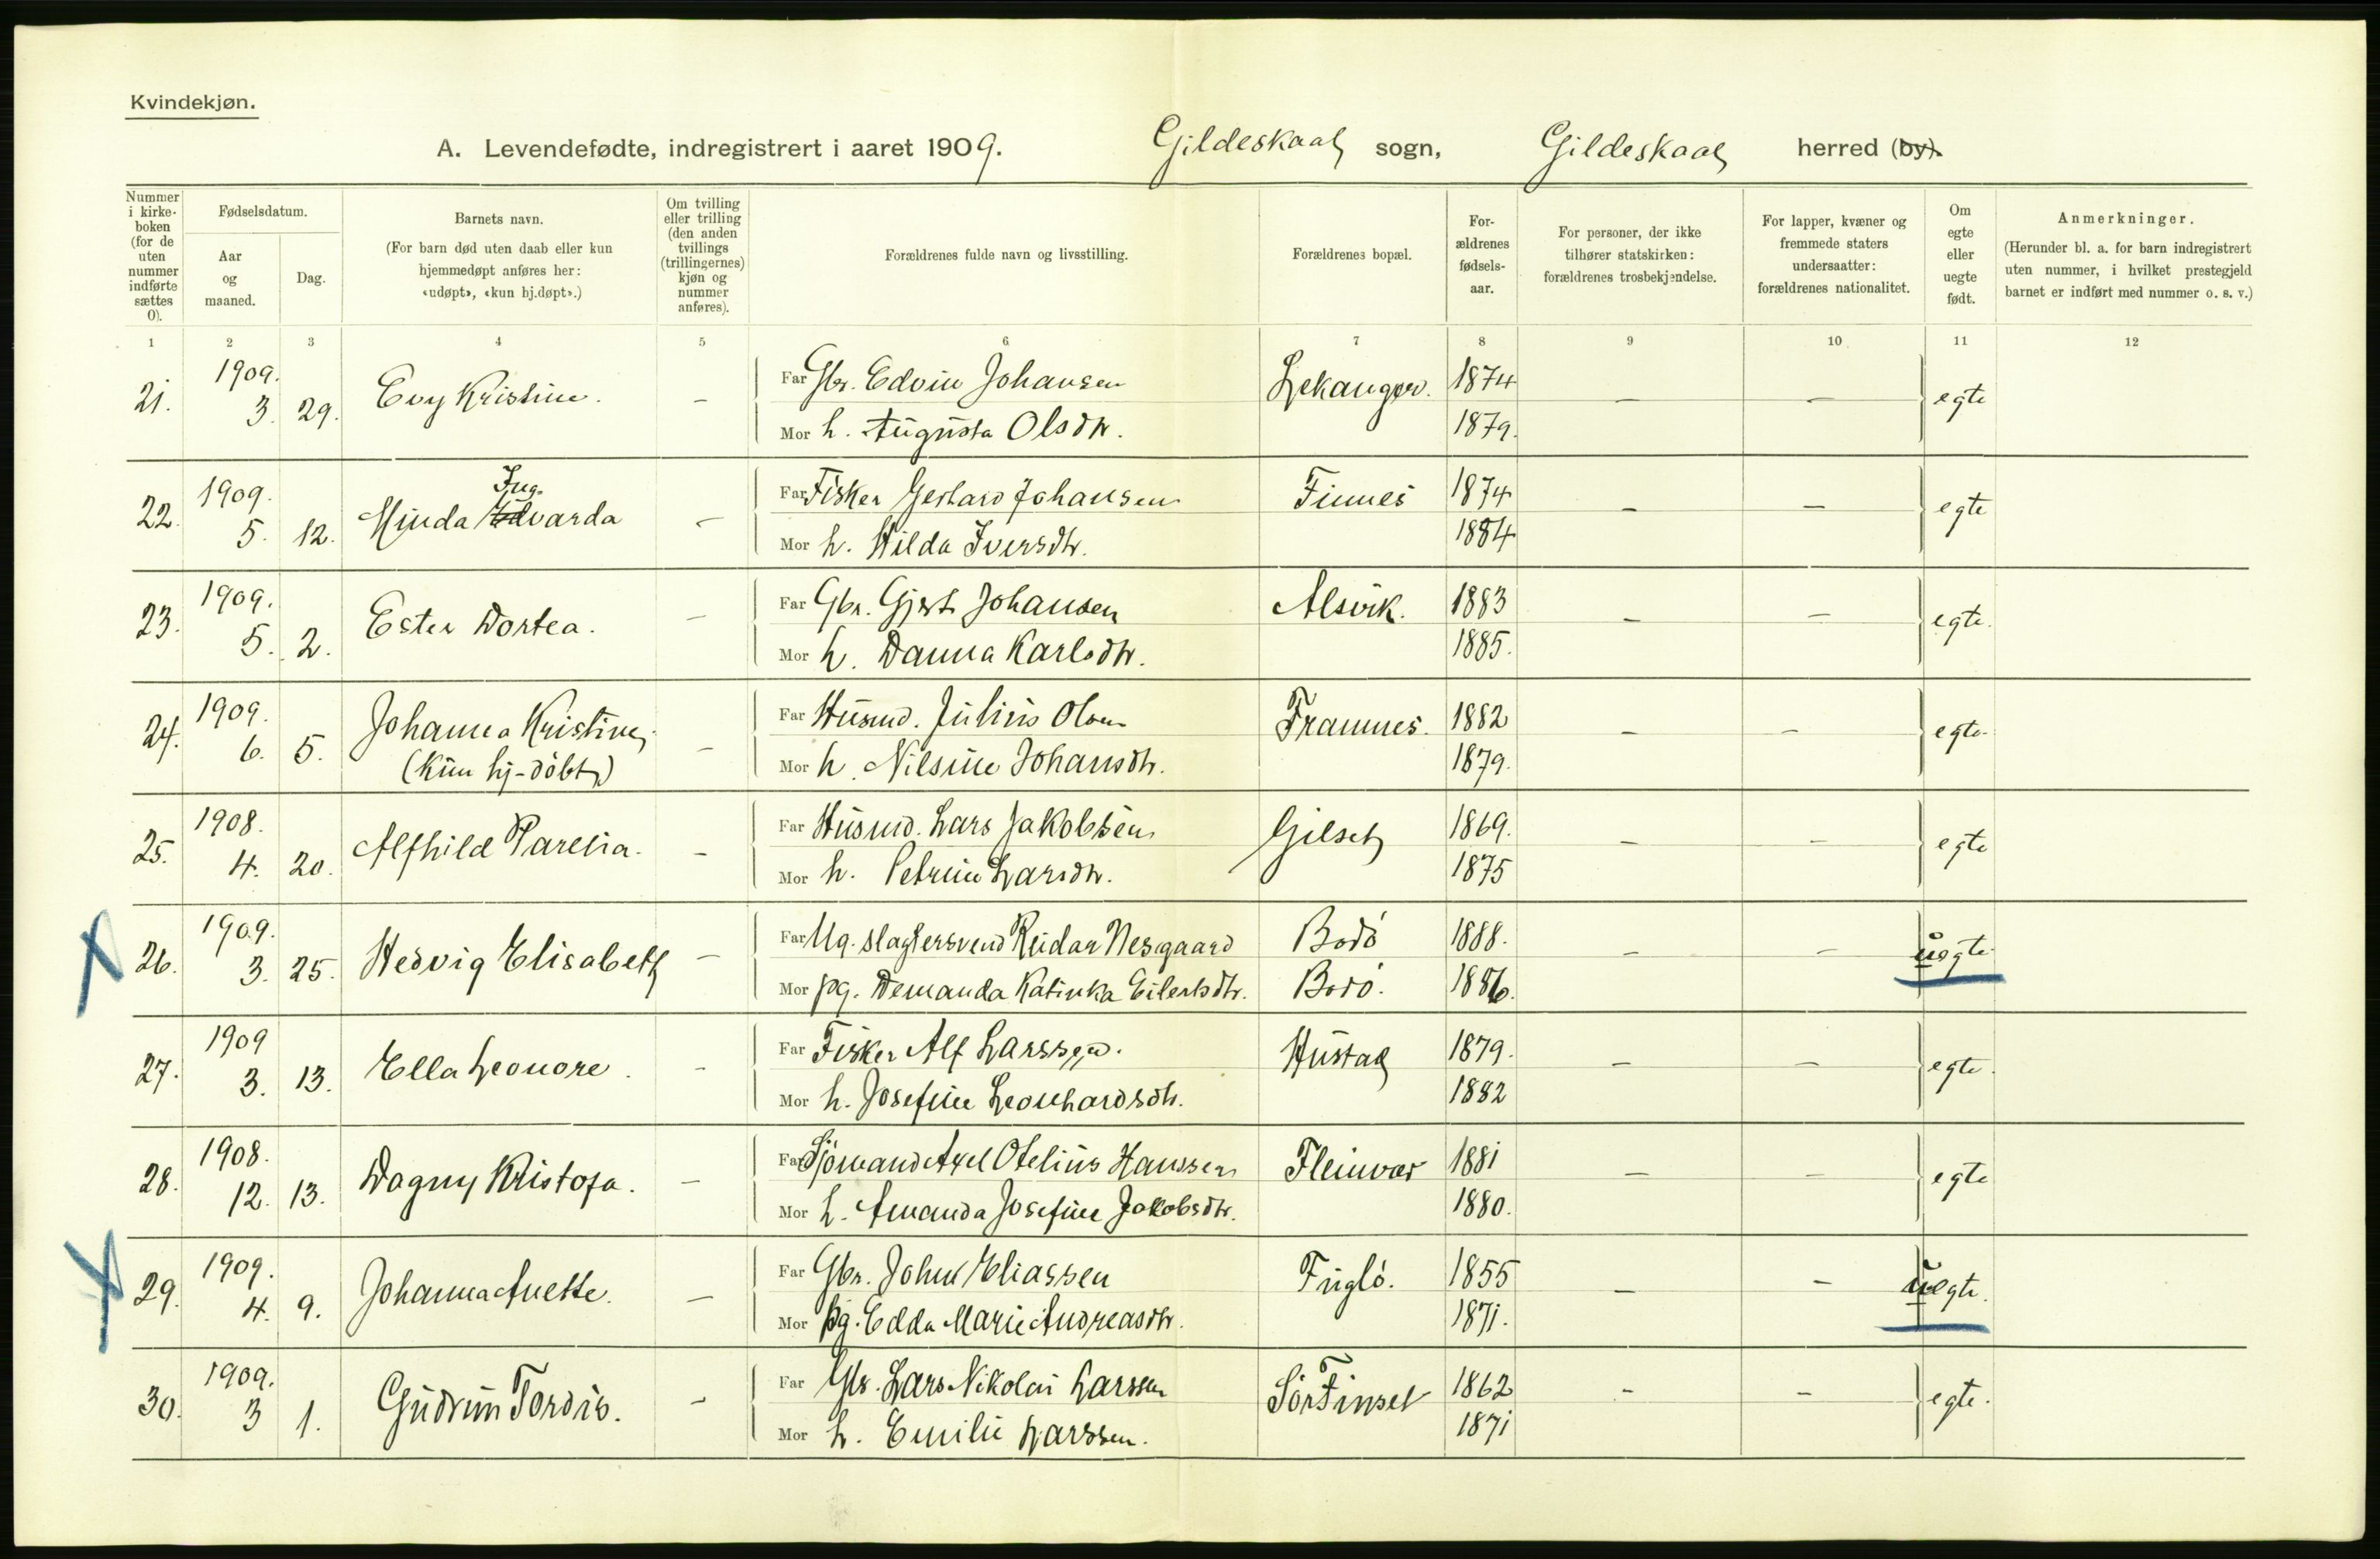 Kvindekjøn.
A. Levendefødte, indregistrert i aaret 1909. Gildeskaal sogn, Gildeskaal herred (by).
Nummer i kirkeboken (for de uten nummer indførte sættes 0).
Fødselsdatum.
Aar og maaned.
Dag.
Barnets navn.
(For barn død uten daab eller kun hjemmedøpt anføres her: «udøpt», «kun hj.døpt».)
Om tvilling eller trilling (den anden tvillings (trillingernes) kjøn og nummer anføres).
Forældrenes fulde navn og livsstilling.
Forældrenes bopæl.
Forældrenes fødselsaar.
For personer, der ikke tilhører statskirken: forældrenes trosbekjendelse.
For lapper, kvæner og fremmede staters undersaatter: forældrenes nationalitet.
Om egte eller uegte født.
Anmerkninger.
(Herunder bl. a. for barn indregistrert uten nummer, i hvilket prestegjeld barnet er indført med nummer o. s. v.)
1 2 3 4 5 6 7 8 9 10 11 12
21. 1909. 3. 29. Evy Kristine. – Far Gbr. Edvin Johansen 1874 – – egte
Mor h. Augusta Olsdtr. 1879.
22. 1909. 5. 12. Minda Ingvarda – Far Fisker Gerhard Johansen Finnes 1874 – – egte
Mor h. Hilda Iversdtr. 1884
23. 1909. 5. 2. Ester Dortea. – Far Gbr. Gjert Johansen Alsvik. 1883 – – egte.
Mor h. Danna Karlsdtr. 1885.
24. 1909. 6. 5. Johanna Kristine, (kun hj-döbt) – Far Husmd. Julius Olsen Framnes. 1882 – – egte.
Mor h. Nilsine Johansdtr. 1879.
25. 1908. 4. 20. Alfhild Parelia. – Far Husmd. Lars Jakobsen Gilset 1869. – – egte
Mor h. Petrine Larsdtr. 1875
26. 1909. 3. 25. Hedvig Elisabeth – Far Ug. slagtersvend Reidar Nesgaard Bodö 1888. – – uegte.
Mor pg. Demanda Katinka Eilertsdtr. Bodö. 1886.
27. 1909 3. 13. Ella Leonore. – Far Fisker Alf Larssen. Hustad 1879. – – egte.
Mor h. Josefine Leonhardsdtr. 1882
28. 1908. 12. 13. Dagny Kristofa. – Far Sjömand Axel Otelius Hanssen Fleinvær 1881 – – egte
Mor h. Amanda Josefine Jakobsdtr. 1880.
29. 1909. 4. 9. Johanna Anette. – Far Gbr. Johan Eliassen Fuglö. 1855 – – uegte.
Mor pg. Edda Marie Andreasdtr. 1871.
30. 1909. 3 1. Gudrun Tordis. – Far Gbr. Lars Nikolai Larssen Sör Finset 1862 – – egte.
Mor h. Emilie Larssen. 1871